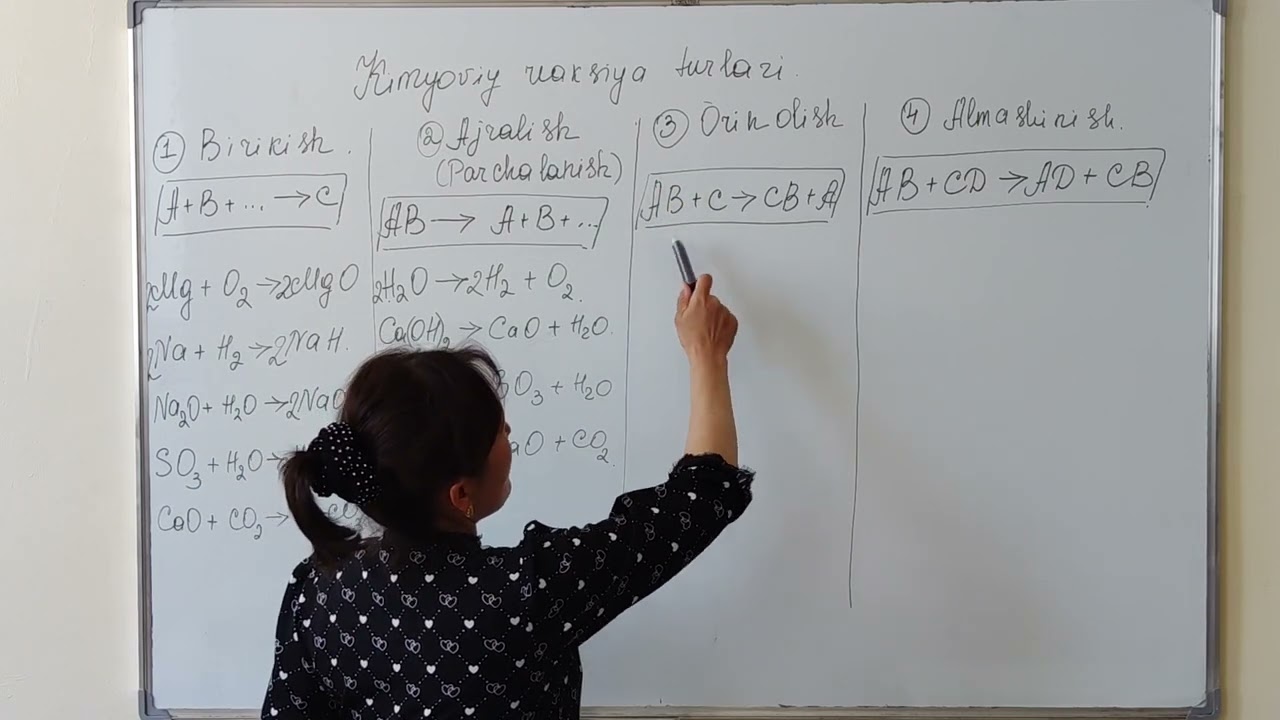 Kimyoviy reaksiya turlari.
① Birikish.
A+B+... → C
2Mg + O₂ → 2MgO
2Na + H₂ → 2NaH.
Na₂O + H₂O → 2NaO
SO₃ + H₂O →
CaO + CO₂ → CO₃
② Ajralish
(Parchalanish)
AB → A+B+...
2H₂O → 2H₂ + O₂.
Ca(OH)₂ → CaO + H₂O.
O₃ + H₂O
aO + CO₂.
③ Òrin Olish
AB + C → CB + A
④ Almashinish.
AB + CD → AD + CB